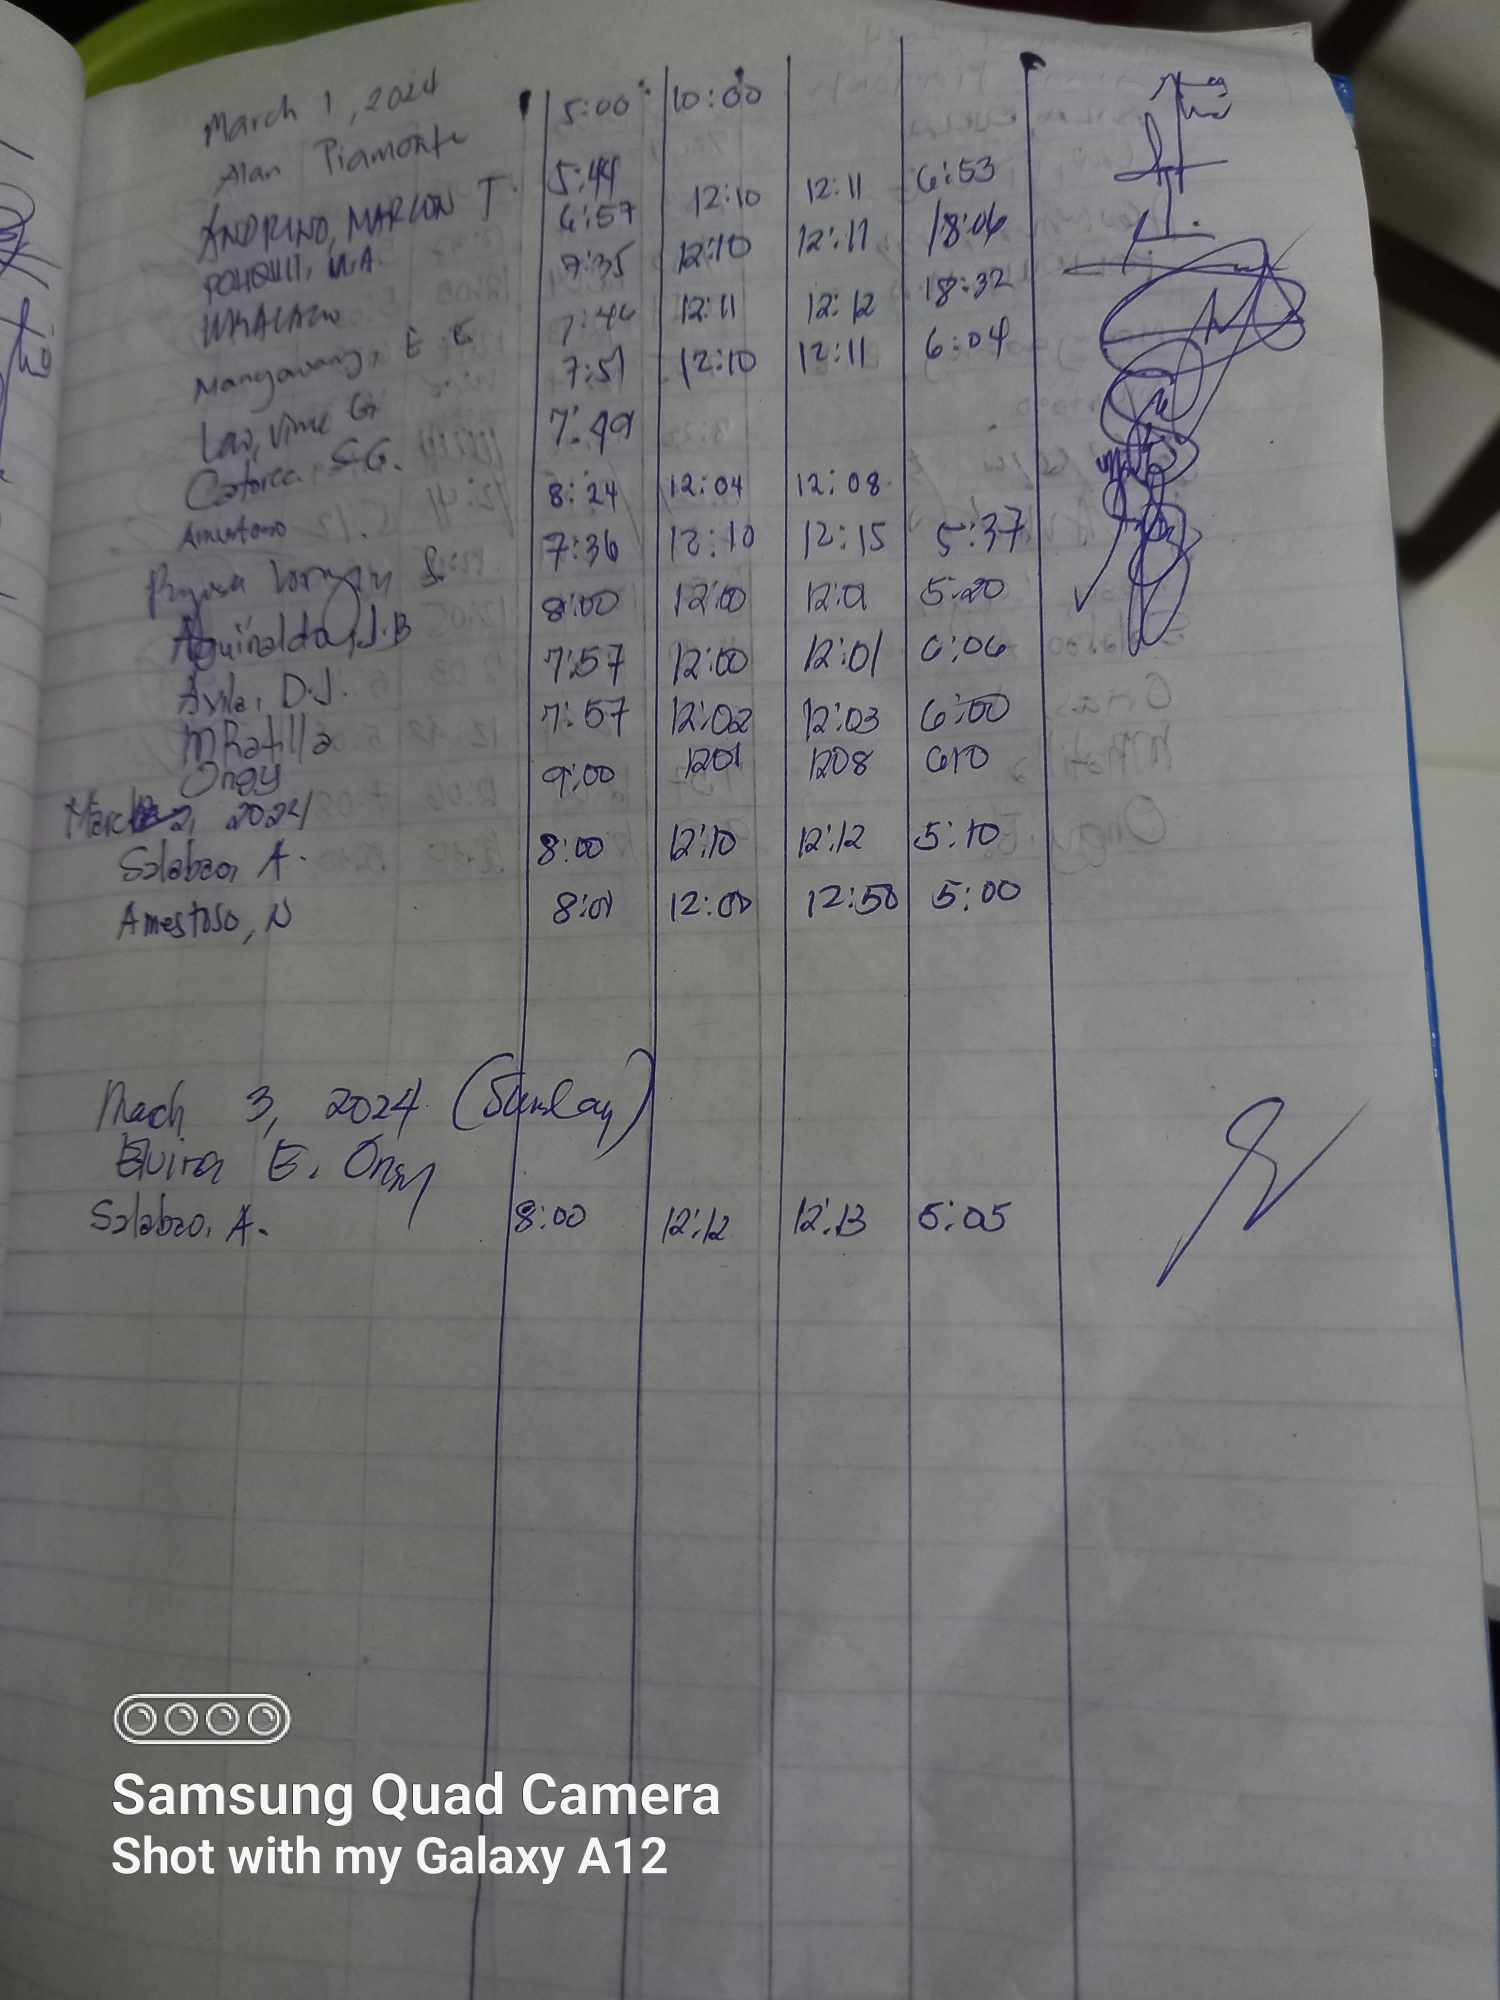 March 1, 2024
Alan Piamonte 5:00 10:00
ANDRINO, MARLON T. 5:44 12:10 12:11 6:53
6:57 12:10 12:11 18:06
7:35 12:11 12:12 18:32
Mangavang, E E 7:46 12:10 12:11 6:04
Lao, Vime G 7:51
Catorce S.G. 7:49
Amestoso 8:24 12:04 12:08
7:36 12:10 12:15 5:37
Aguinaldo, J.B 8:00 12:00 12:01 5:20
Avila, D.J. 7:57 12:00 12:01 6:06
MRatilla 7:57 12:02 12:03 6:00
Ongy 9:00 1201 1208 610
March 2, 2024
Salabao, A. 8:00 12:10 12:12 5:10
Amestoso, N 8:01 12:00 12:50 5:00
March 3, 2024 (Sunday)
Elvira E. Ongy
Salabao, A. 8:00 12:12 12:13 5:05
Samsung Quad Camera
Shot with my Galaxy A12